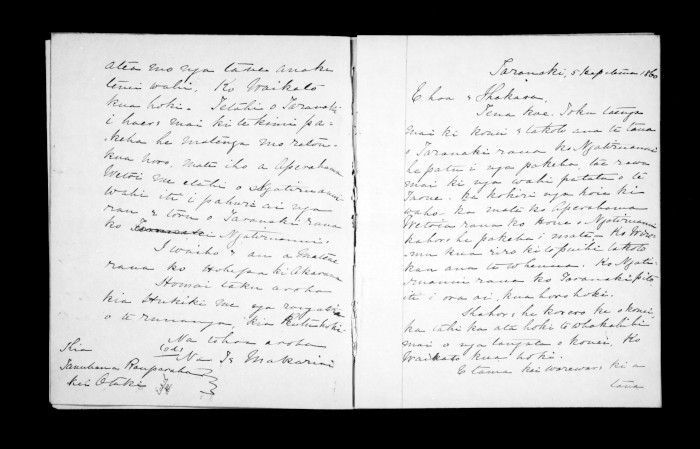 atea mo nga tane anake
tenei wahi. Ko Waikato
kua hoki. Tetahi o Taranaki
i haere mai ki te kimi pa-
keha he matenga mo ratou-
kua horo, mate iho a Aperahama
Wetoi me etahi o Ngatiruanui
wahi iti i pahure ai nga
rau e toru o Taranaki raua
ko Ngatiruanui.
I waiho e au a Matene
raua ko Hohepa ki Akarana
Homai taku aroha
kia Hukiki me nga rangatira
o te runanga, kia Rutuhoki-
Na tohou aroha
Na Ta Makarini
Kia
Tamihana Rauparaha
kei Otaki
Taranaki, 5 Hepetema 1860
E hoa e
Tena koe. Toku taenga
mai ki konei e takoto ana te taua
o Taranaki raua ko Ngatiruanui
he patu i nga pakeha, tae rawa
mai ki nga wahi patata o te
Taone. Ka kokiri nga hoia ki
waho. ka mate ko Aperahama
Wetoi raua ko Hone o Ngatiruanui
kahore he pakeha i mate. Ko
mu kua riro ki to ratou takoto
kau ana te whenua. Ko Ngati-
ruanui raua ko Taranaki
te i ora ai, kua horo hoki.
Kahore he korero ke o konei,
ka tahi ka ata hoki te whakatikatika
mai o nga tangata o konei. Ko
Waikato kua hoki.
E tama kei wareware ki a
taua